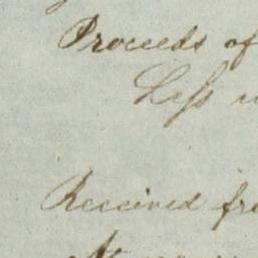 Proceeds of
Less
Received fr